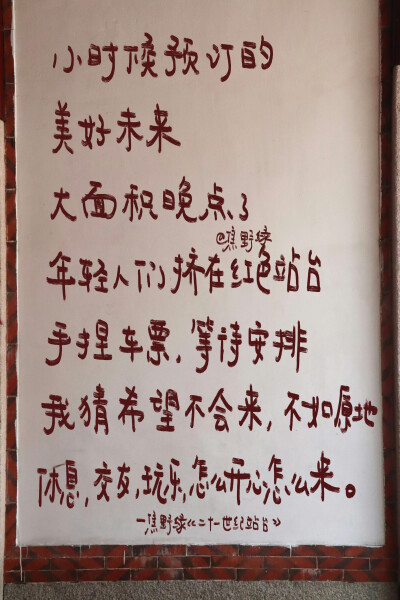 小时候预订的
美好未来
大面积晚点了
@焦野绿
年轻人们挤在红色站台
手捏车票,等待安排
我猜希望不会来,不如原地
休息,交友,玩乐,怎么开心怎么来。
—焦野绿《二十一世纪站台》